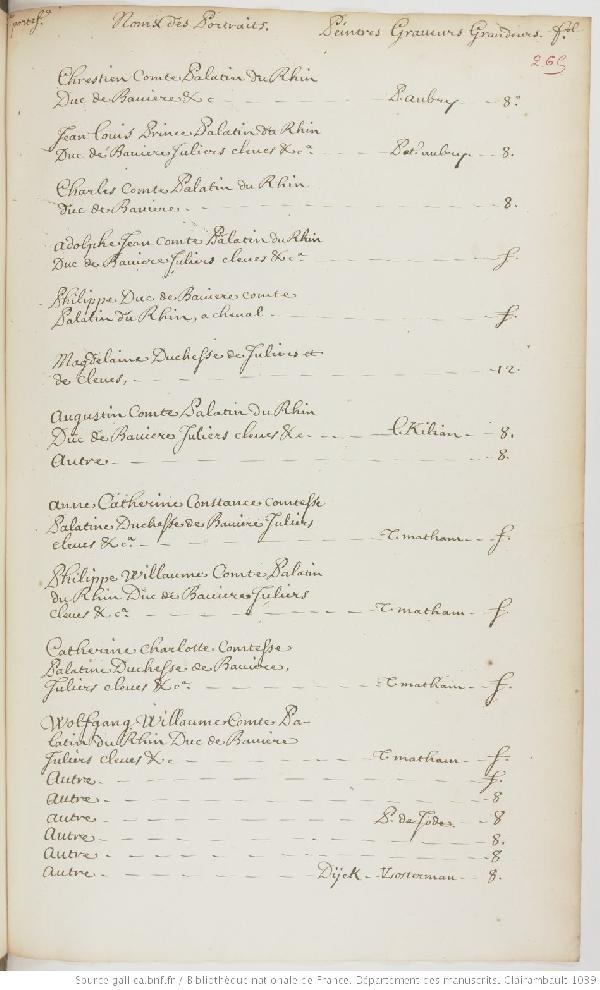 portef.
Noms des Portraits. Peintres Graveurs Grandeurs. fol
265
Chrestien Comte Palatin du Rhin
Duc de Baviere &c P. aubry 8.
Jean Louis Prince Palatin du Rhin
Duc de Baviere Juliers cleves &ca Pet. aubry. 8.
Charles Comte Palatin du Rhin
Duc de Baviere. 8.
adolphe Jean Comte Palatin du Rhin
Duc de Baviere Juliers cleves &ca f.
Philippe Duc de Baviere comte
Palatin du Rhin, a cheval. f.
Magdelaine Duchesse de Juliers et
de Cleves, 12.
Augustin Comte Palatin du Rhin
Duc de Baviere Juliers cleves &c. Kilian 8.
Autre 8.
Anne Catherine Constance comtesse
Palatine Duchesse de Baviere Juliers
cleves &ca. T. matham f.
Philippe Willaume Comte Palatin
du Rhin Duc de Baviere Juliers
cleves &ca T. matham f.
Catherine Charlotte Comtesse
Palatine Duchesse de Baviere,
Juliers cleves &ca. T. matham f.
Wolfgang Willaume Comte Pa-
latin du Rhin Duc de Baviere
Juliers cleves &c T. matham f.
Autre. f.
Autre 8
Autre P. de Jode. 8
Autre 8.
Autre 8
Autre Dijck Vosterman 8.
Source gallica.bnf.fr / Bibliothèque nationale de France. Département des manuscrits. Clairambault 1039